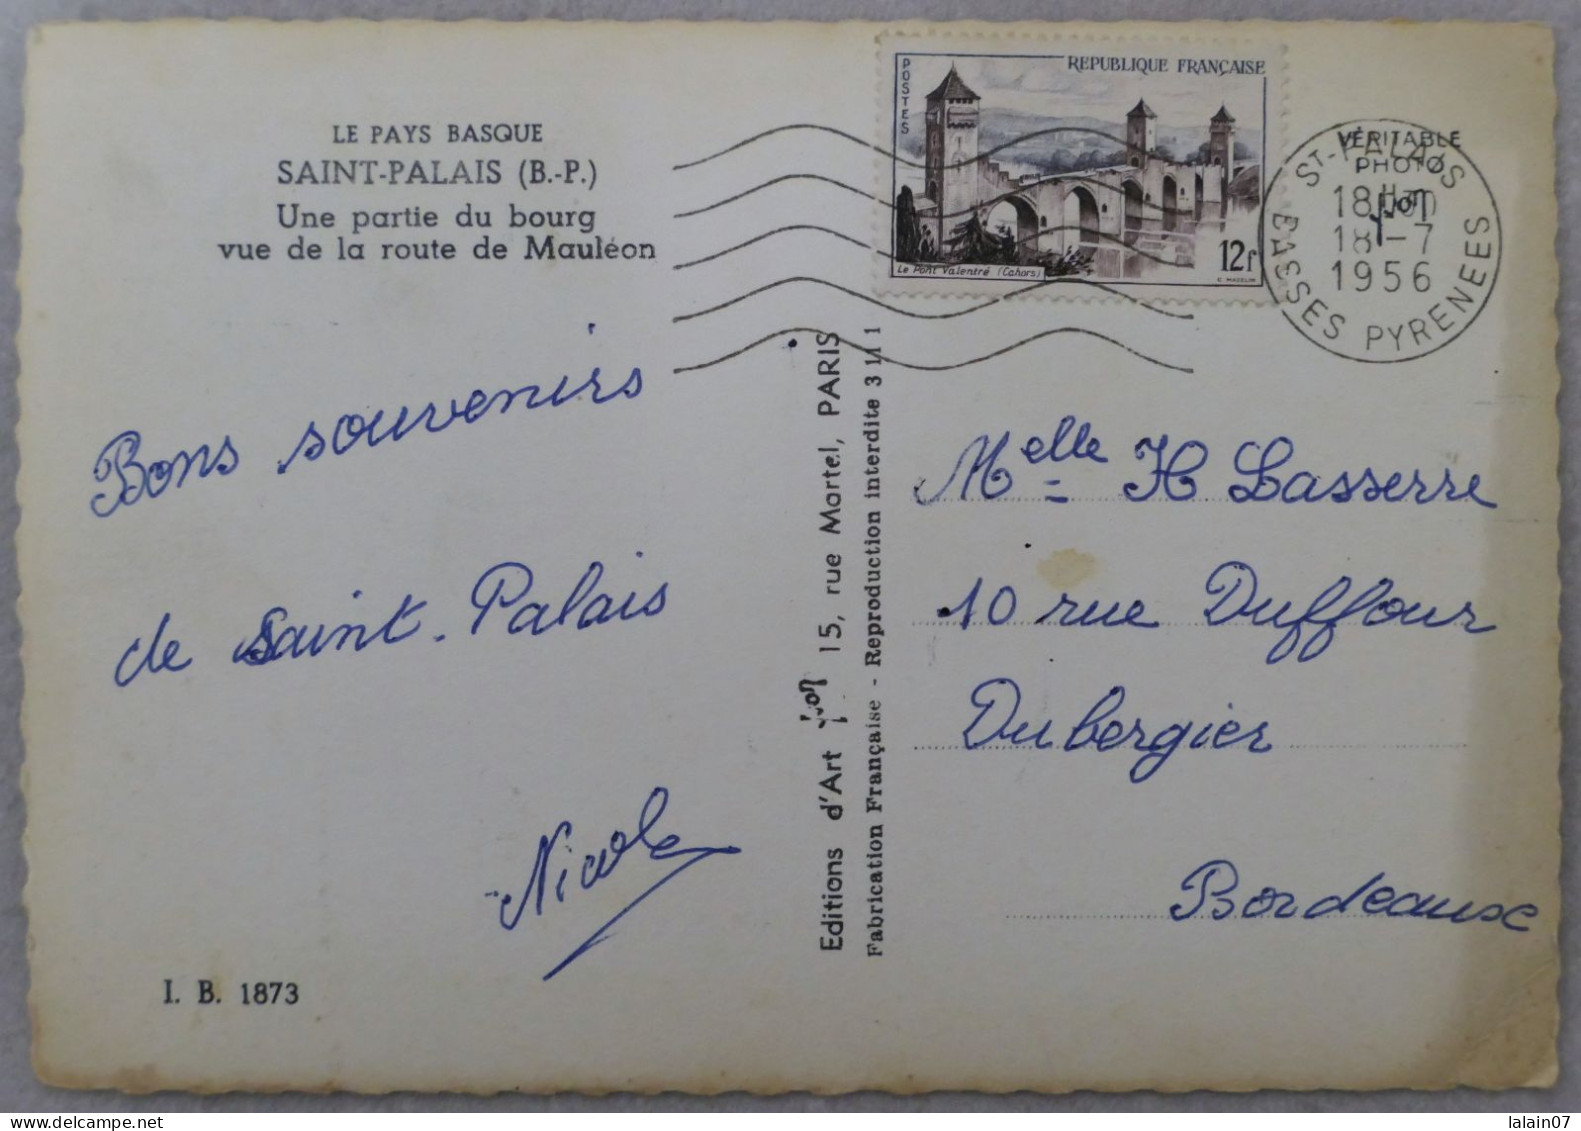 LE PAYS BASQUE
SAINT-PALAIS (B.-P.)
Une partie du bourg
vue de la route de Mauléon
Bons souvenirs
de Saint-Palais
Nicole
I. B. 1873
Editions d'Art yvon 15, rue Martel, PARIS
Fabrication Française - Reproduction interdite 3 11 1
POSTES
REPUBLIQUE FRANÇAISE
Le Pont Valentré (Cahors)
12f
VÉRITABLE
PHOTO
yvon
ST-PALAIS
18H30
18-7
1956
BASSES PYRENEES
Melle H Lasserre
10 rue Duffour
Dubergier
Bordeaux
lalain07